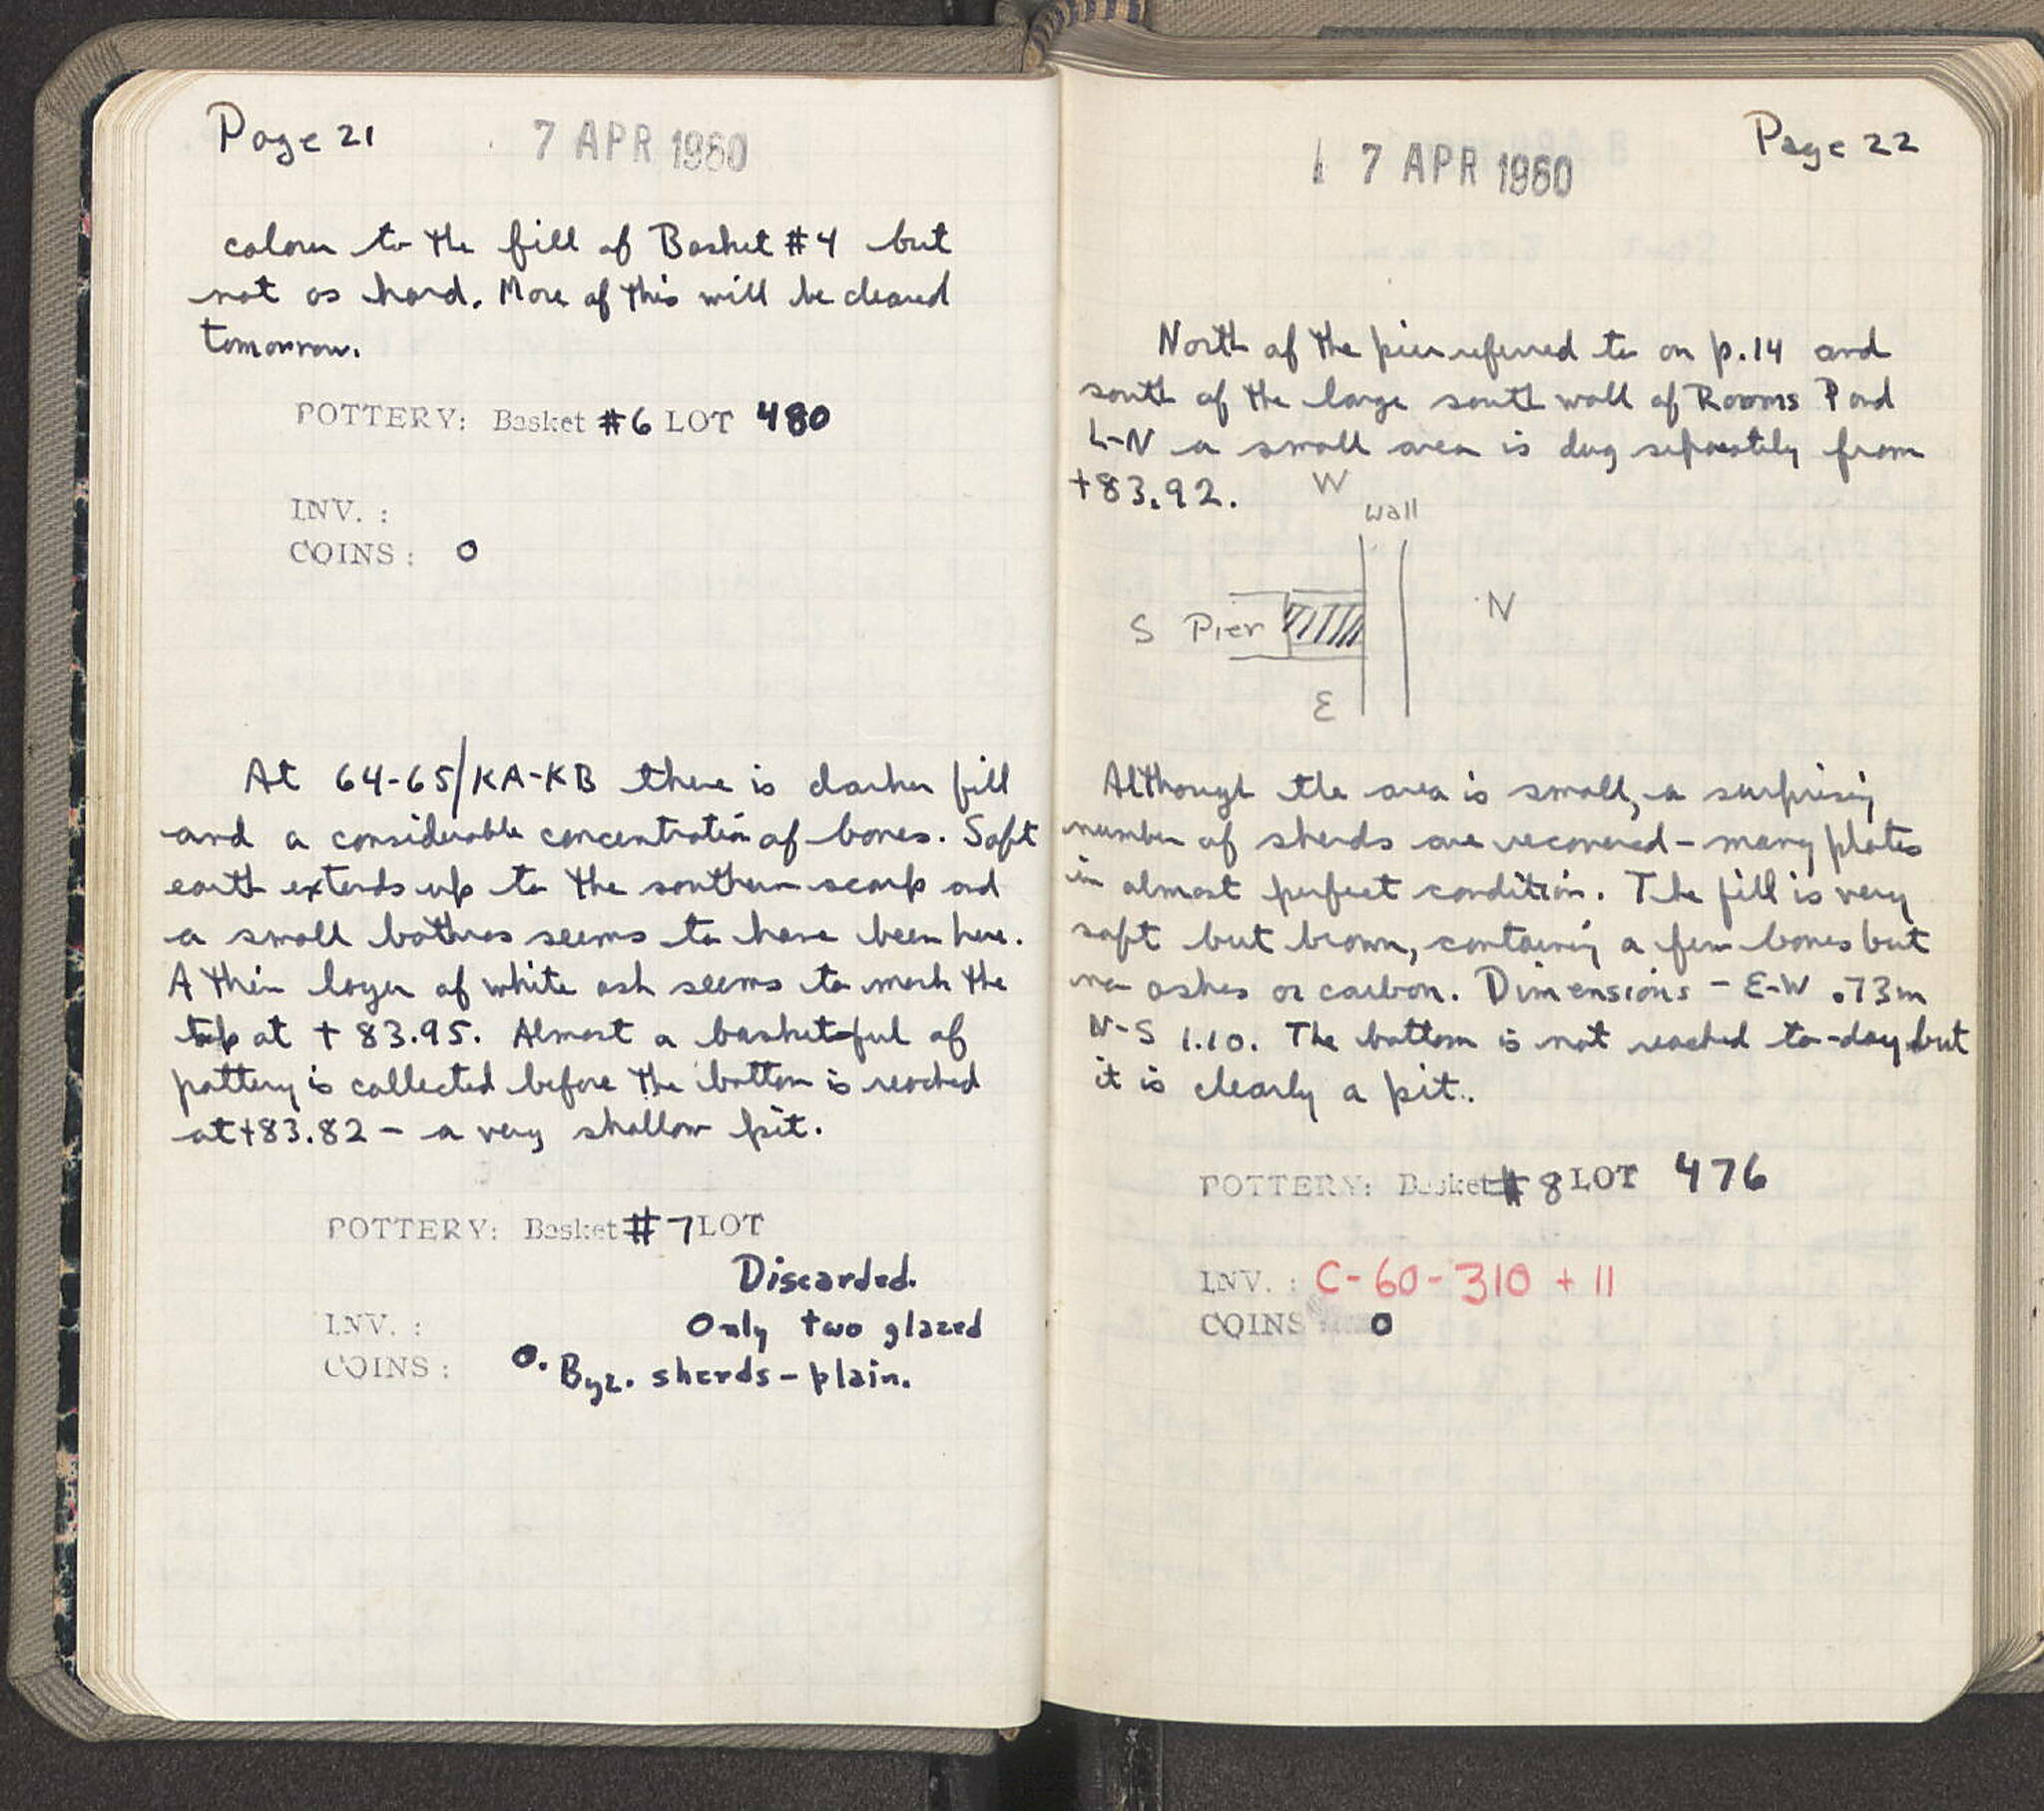 Page 21
7 APR 1960
colour to the fill of Basket #4 but
not as hard. More of this will be cleared
tomorrow.
POTTERY: Basket #6 LOT 480
INV. :
COINS : 0
At 64-65/KA-KB there is darker fill
and a considerable concentration of bones. Soft
earth extends up to the southern scarp and
a small bothros seems to have been here.
A thin layer of white ash seems to mark the
top at +83.95. Almost a basketful of
pottery is collected before the bottom is reached
at +83.82 – a very shallow pit.
POTTERY: Basket #7 LOT
Discarded.
INV. : Only two glazed
COINS : 0. Byz. sherds – plain.
Page 22
7 APR 1960
North of the pier referred to on p.14 and
south of the large south wall of Rooms P and
L-N a small area is dug separately from
+83.92.
W
wall
S Pier N
E
Although the area is small, a surprising
number of sherds are recovered – many plates
in almost perfect condition. The fill is very
soft but brown, containing a few bones but
no ashes or carbon. Dimensions – E-W .73m
N-S 1.10. The bottom is not reached to-day but
it is clearly a pit.
POTTERY: Basket #8 LOT 476
INV. : C-60-310 + 11
COINS 0